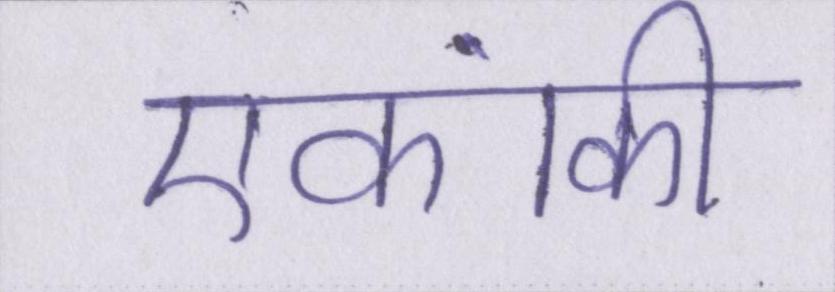 एकांकी